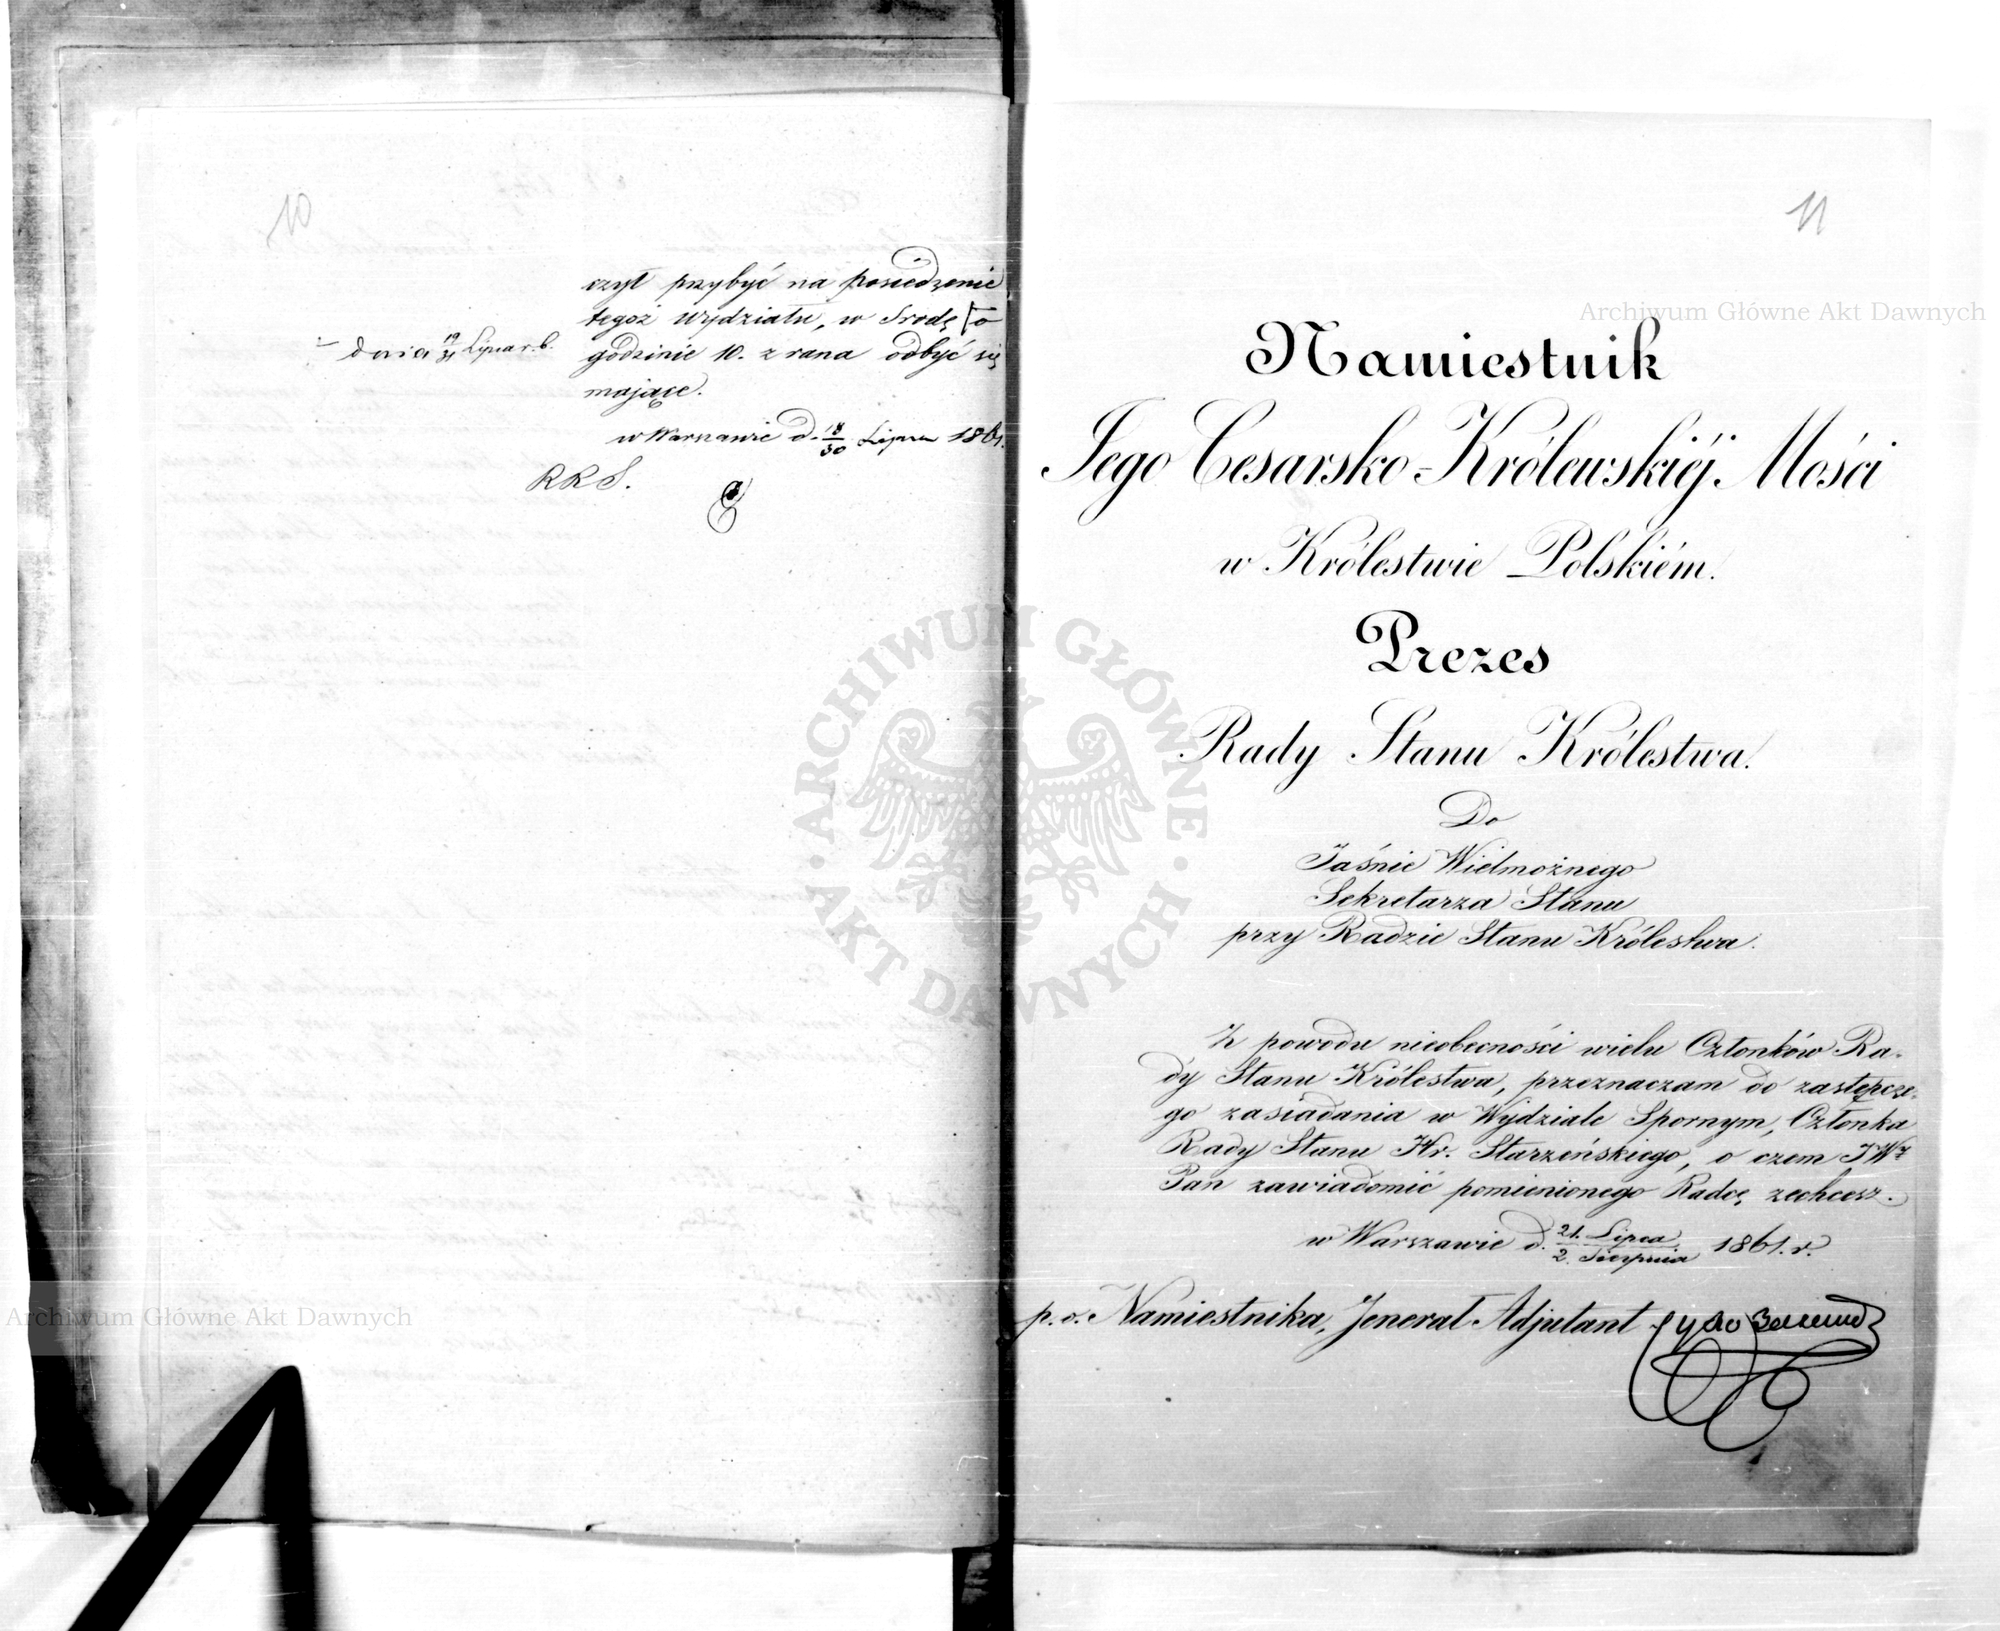 10
czył przybyć na posiedzenie
tegoż wydziału, w Srodę o
dnia 19/31 Lipca r. b.
godzinie 10. z rana odbyć się
mające.
w Warszawie d. 18/30 Lipca 1861.
RRS.
11
Namiestnik
Jego Cesarsko-Królewskiéj Mości
w Królestwie Polskiém.
Prezes
Rady Stanu Królestwa.
Do
Jaśnie Wielmożnego
Sekretarza Stanu
przy Radzie Stanu Królestwa.
Z powodu nieobecności wielu Członków Ra-
dy Stanu Królestwa, przeznaczam do zastępcze-
go zasiadania w Wydziale Spornym, Członka
Rady Stanu Hr. Starzeńskiego, o czem JWy
Pan zawiadomić pomienionego Radcę zechcesz.
w Warszawie d. 21. Lipca/2. Sierpnia 1861. r.
p. o. Namiestnika, Jenerał Adjutant
Archiwum Główne Akt Dawnych
ARCHIWUM GŁÓWNE · AKT DAWNYCH ·
Archiwum Główne Akt Dawnych